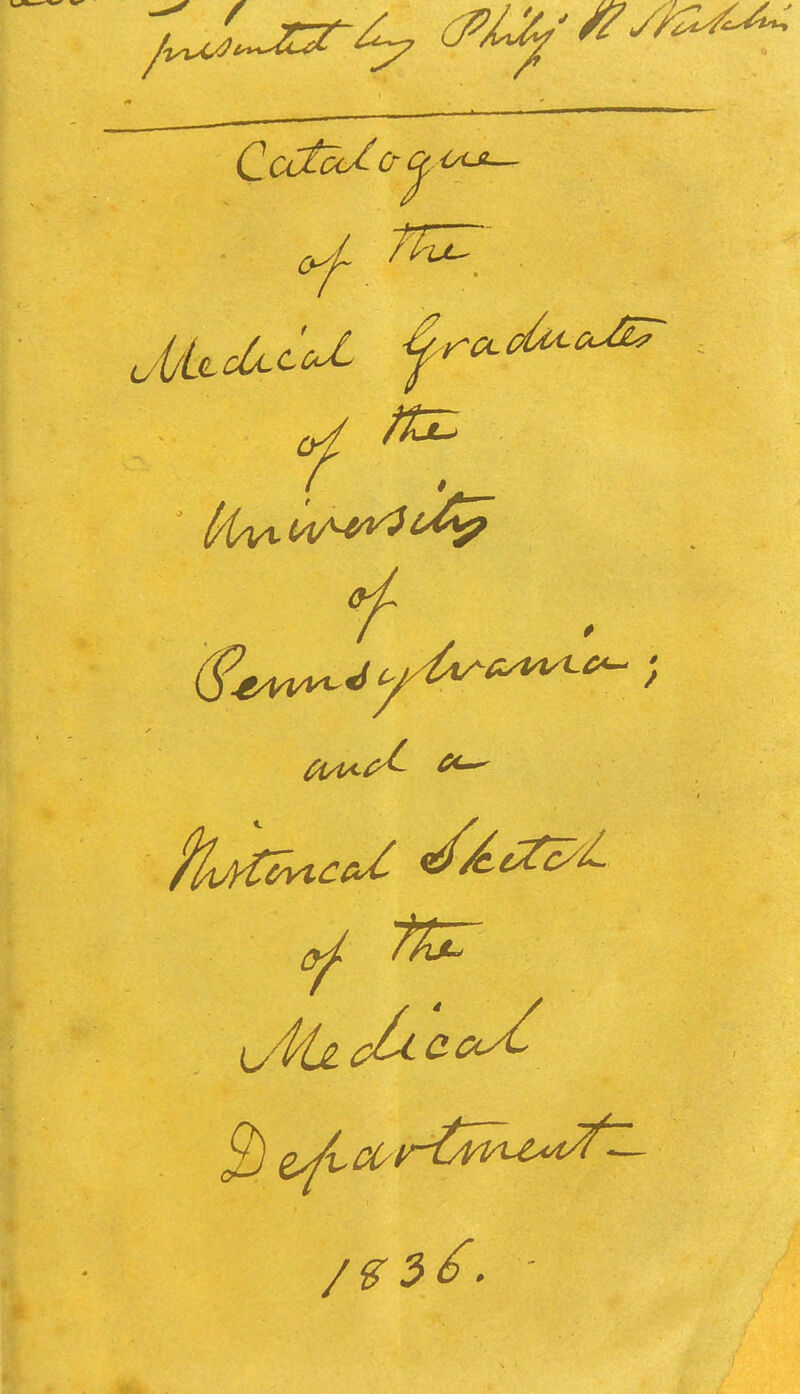 presented by Philip
Catalogue
of The
Medical Graduates
of the
University
of
Pennsylvania;
and a
Historical Sketch
of The
Medical
Department
1836.